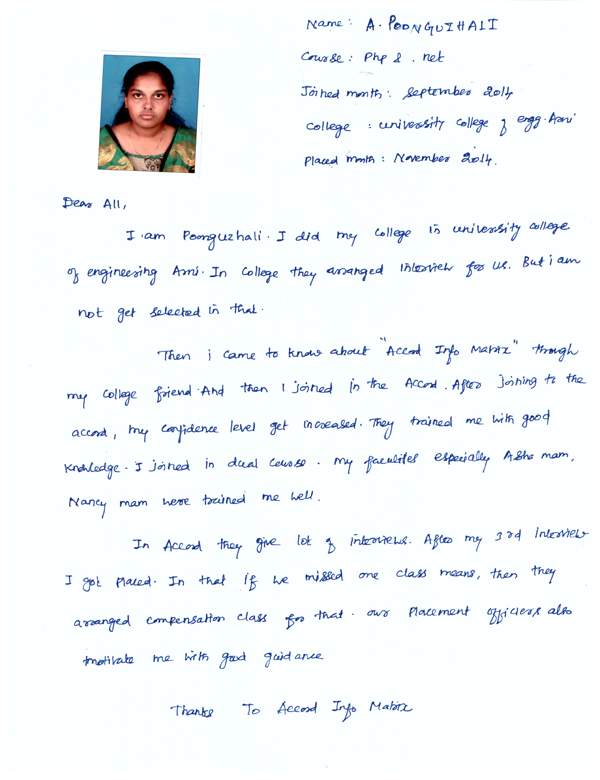 Name : A. POONGUZHALI
Course : Php & .net
Joined month : September 2014
College : University College of engg. Arni
Placed month : November 2014.
Dear All,
I am Poonguzhali. I did my college in university college
of engineering Arni. In College they arranged interview for us. But i am
not get selected in that.
Then i came to know about "Accord Info Matrix" through
my college friend. And then I joined in the Accord. After joining to the
accord, my confidence level get increased. They trained me with good
knowledge. I joined in dual course. my faculites especially Asha mam,
Nancy mam were trained me well.
In Accord they give lot of interviews. After my 3rd interview
I got placed. In that if we missed one class means, then they
arranged compensation class for that. our placement officiers also
motivate me with good guidance
Thanks To Accord Info Matrix